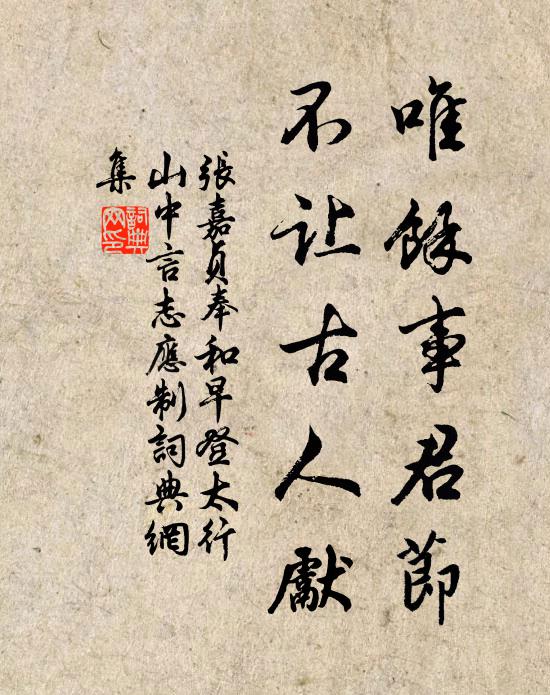 唯餘事君節
不让古人獻
張嘉貞奉和早登太行
山中言志應制詞典網
集
詞典網印